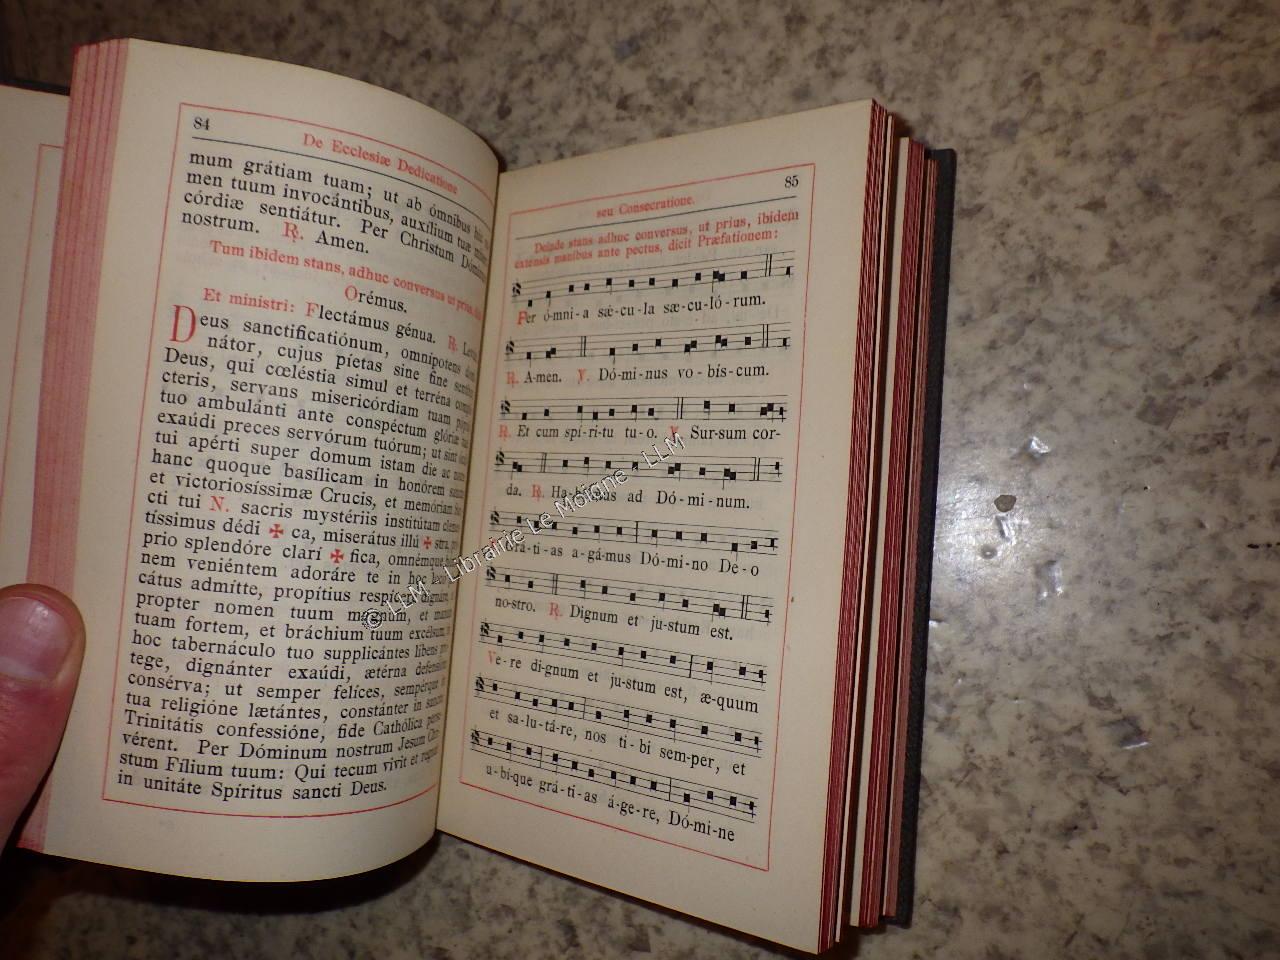 84
De Ecclesiæ Dedicatione
mum grátiam tuam; ut ab ómnibus
men tuum invocántibus, auxílium tuæ
córdiæ sentiátur. Per Christum Dóminum
nostrum. ℟. Amen.
Tum ibidem stans, adhuc conversus ut prius,
Orémus.
Et ministri: Flectámus génua. ℟.
Deus sanctificatiónum, omnípotens
nátor, cujus píetas sine fine
Deus, qui cœléstia simul et terréna
cteris, servans misericórdiam tuam
tuo ambulánti ante conspéctum glóriæ
exaúdi preces servórum tuórum; ut sint
tui apérti super domum istam die ac
hanc quoque basílicam in honórem
et victoriosíssimæ Crucis, et memóriam
cti tui N. sacris mystériis institútam
tíssimus dédi ✠ ca, miserátus illú ✠ stra,
prio splendóre clarí ✠ fica, omnémque
nem veniéntem adoráre te in hoc
cátus admítte, propítius
propter nomen tuum magnum, et
tuam fortem, et bráchium tuum
hoc tabernáculo tuo supplicántes libens
tege, dignánter exaúdi, ætérna
consérva; ut semper felíces, sempérque
tua religióne lætántes, constánter in
Trinitátis confessióne, fide Cathólica
vérent. Per Dóminum nostrum Jesum
stum Fílium tuum: Qui tecum vivit et
in unitáte Spíritus sancti Deus.
85
seu Consecratione.
Deinde stans adhuc conversus, ut prius, ibidem
extensis manibus ante pectus, dicit Præfationem:
Per ómni-a sǽ-cu-la sæ-cu-ló-rum.
℟. A-men. ℣. Dó-mi-nus vo-bis-cum.
℟. Et cum spí-ri-tu tu-o. ℣. Sur-sum cor-
da. ℟. Ha-bémus ad Dó-mi-num.
Grá-ti-as a-gámus Dó-mi-no De-o
no-stro. ℟. Dignum et ju-stum est.
Ve-re di-gnum et ju-stum est, æ-quum
et sa-lu-tá-re, nos ti-bi sem-per, et
u-bi-que grá-ti-as á-ge-re, Dó-mi-ne
© LLM - Librairie Le Moigne - LLM